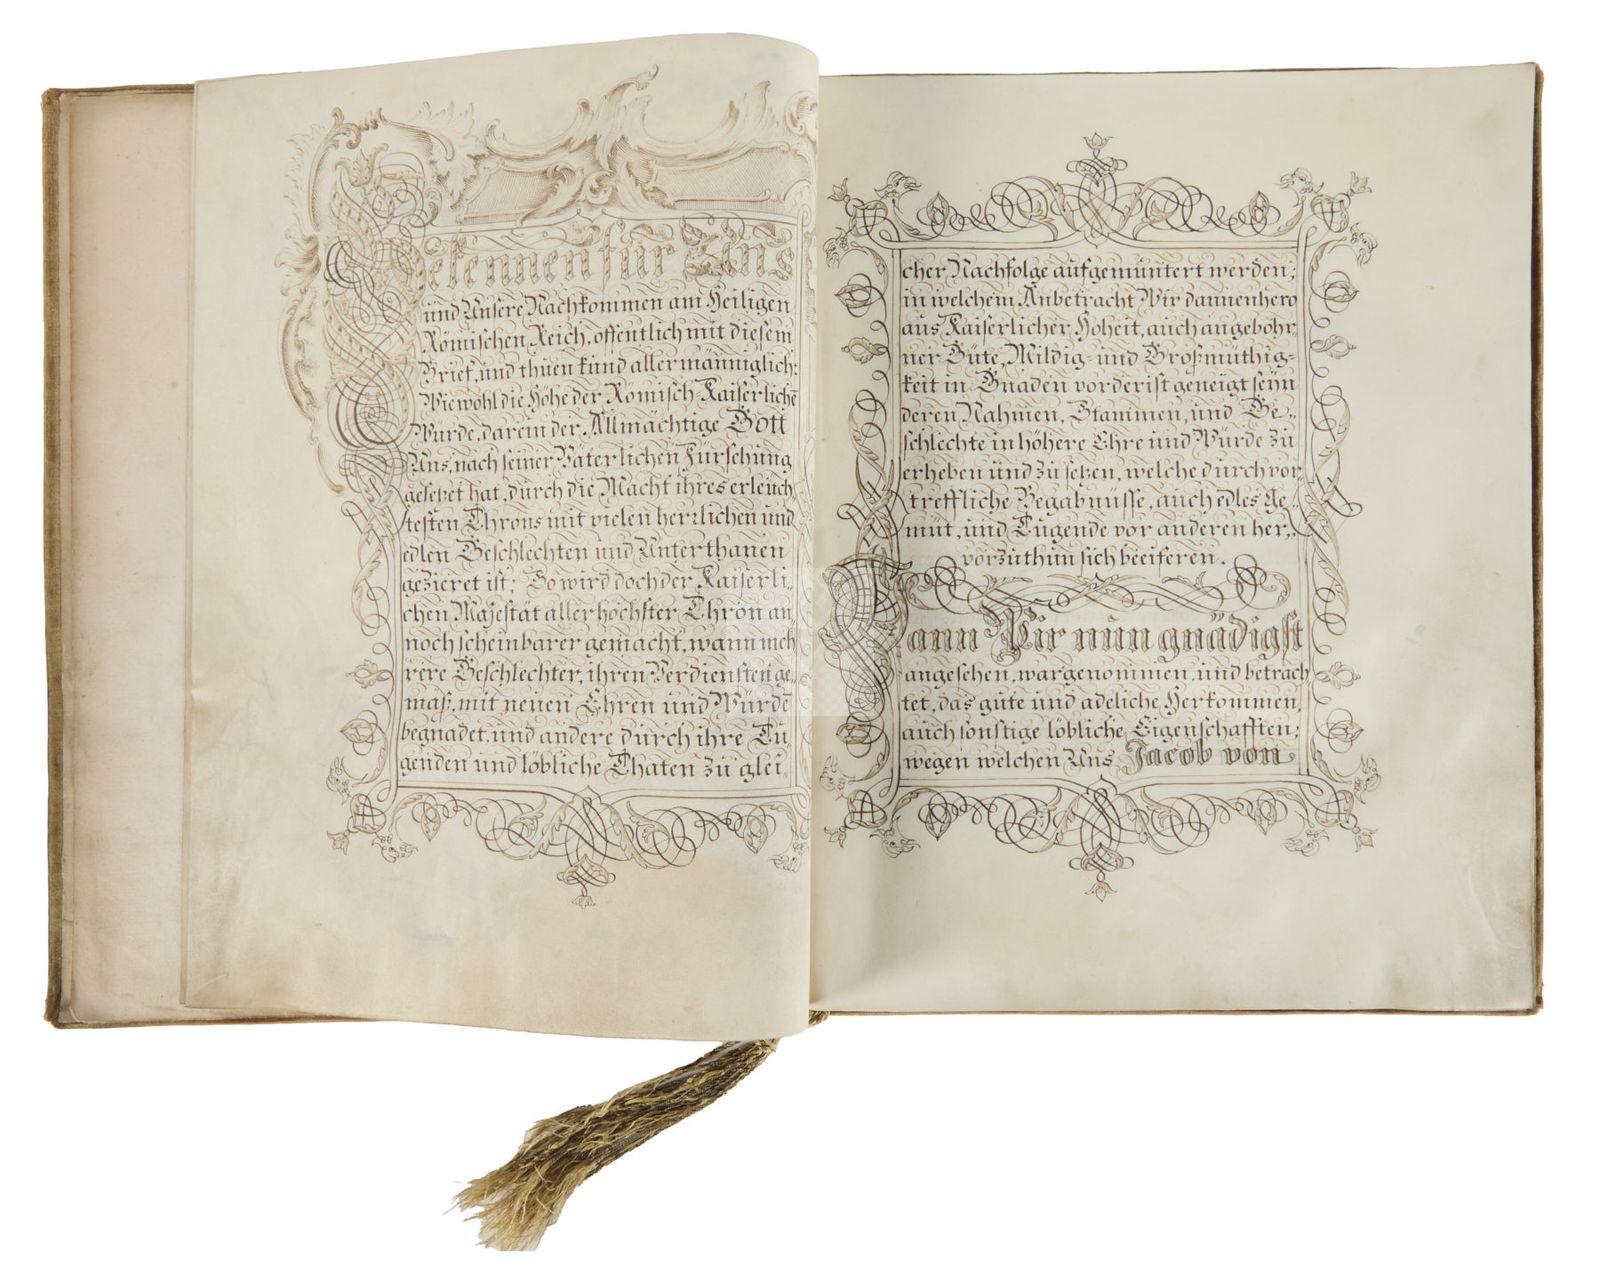 Bekennen für Uns
und Unsere Nachkommen am Heiligen
Römischen Reich, offentlich mit diesem
Brief, und thuen kund allermänniglich:
Wiewohl die Höhe der Römisch-Kaiserlichē
Würde, darein der Allmächtige Gott
Uns, nach seiner Väterlichen Fürsehung
gesetzet hat, durch die Macht ihres erleuch
testen Throns mit vielen herrlichen und
edlen Geschlechten und Unterthanen
gezieret ist; So wird doch der Kaiserli-
chen Majestät allerhöchster Thron an
noch scheinbarer gemacht, wann meh
rere Geschlechter, ihren Verdiensten ge-
mäß, mit neuen Ehren und Würdē
begnadet, und andere durch ihre Tu-
genden und löbliche Thaten zu glei
cher Nachfolge aufgemuntert werden;
in welchem Anbetracht Wir dannenhero
aus Kaiserlicher Hoheit, auch angebohr
ner Güte, Mildig- und Großmüthig-
keit in Gnaden vorderist geneigt seyn
deren Nahmen, Stammen, und Ge-
schlechte in höhere Ehre und Würde zu
erheben und zu setzen, welche durch vor-
treffliche Begabnusse, auch edles Ge-
müt, und Tugende vor anderen her-
vorzuthun sich beeiferen.
Wann Wir nun gnädigst
angesehen, wargenommen, und betrach
tet, das gute und adeliche Herkommen,
auch sonstige löbliche Eigenschafften;
wegen welchen Uns Jacob von